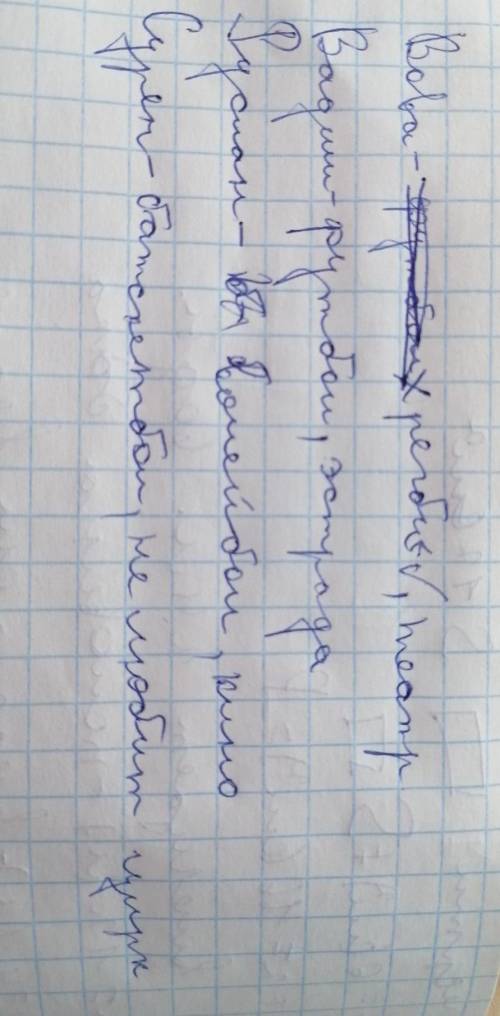 Вова - регби, театр
Вадим - футбол, эстрада
Руслан - волейбол, кино
Сурен - баскетбол, не любит цирк